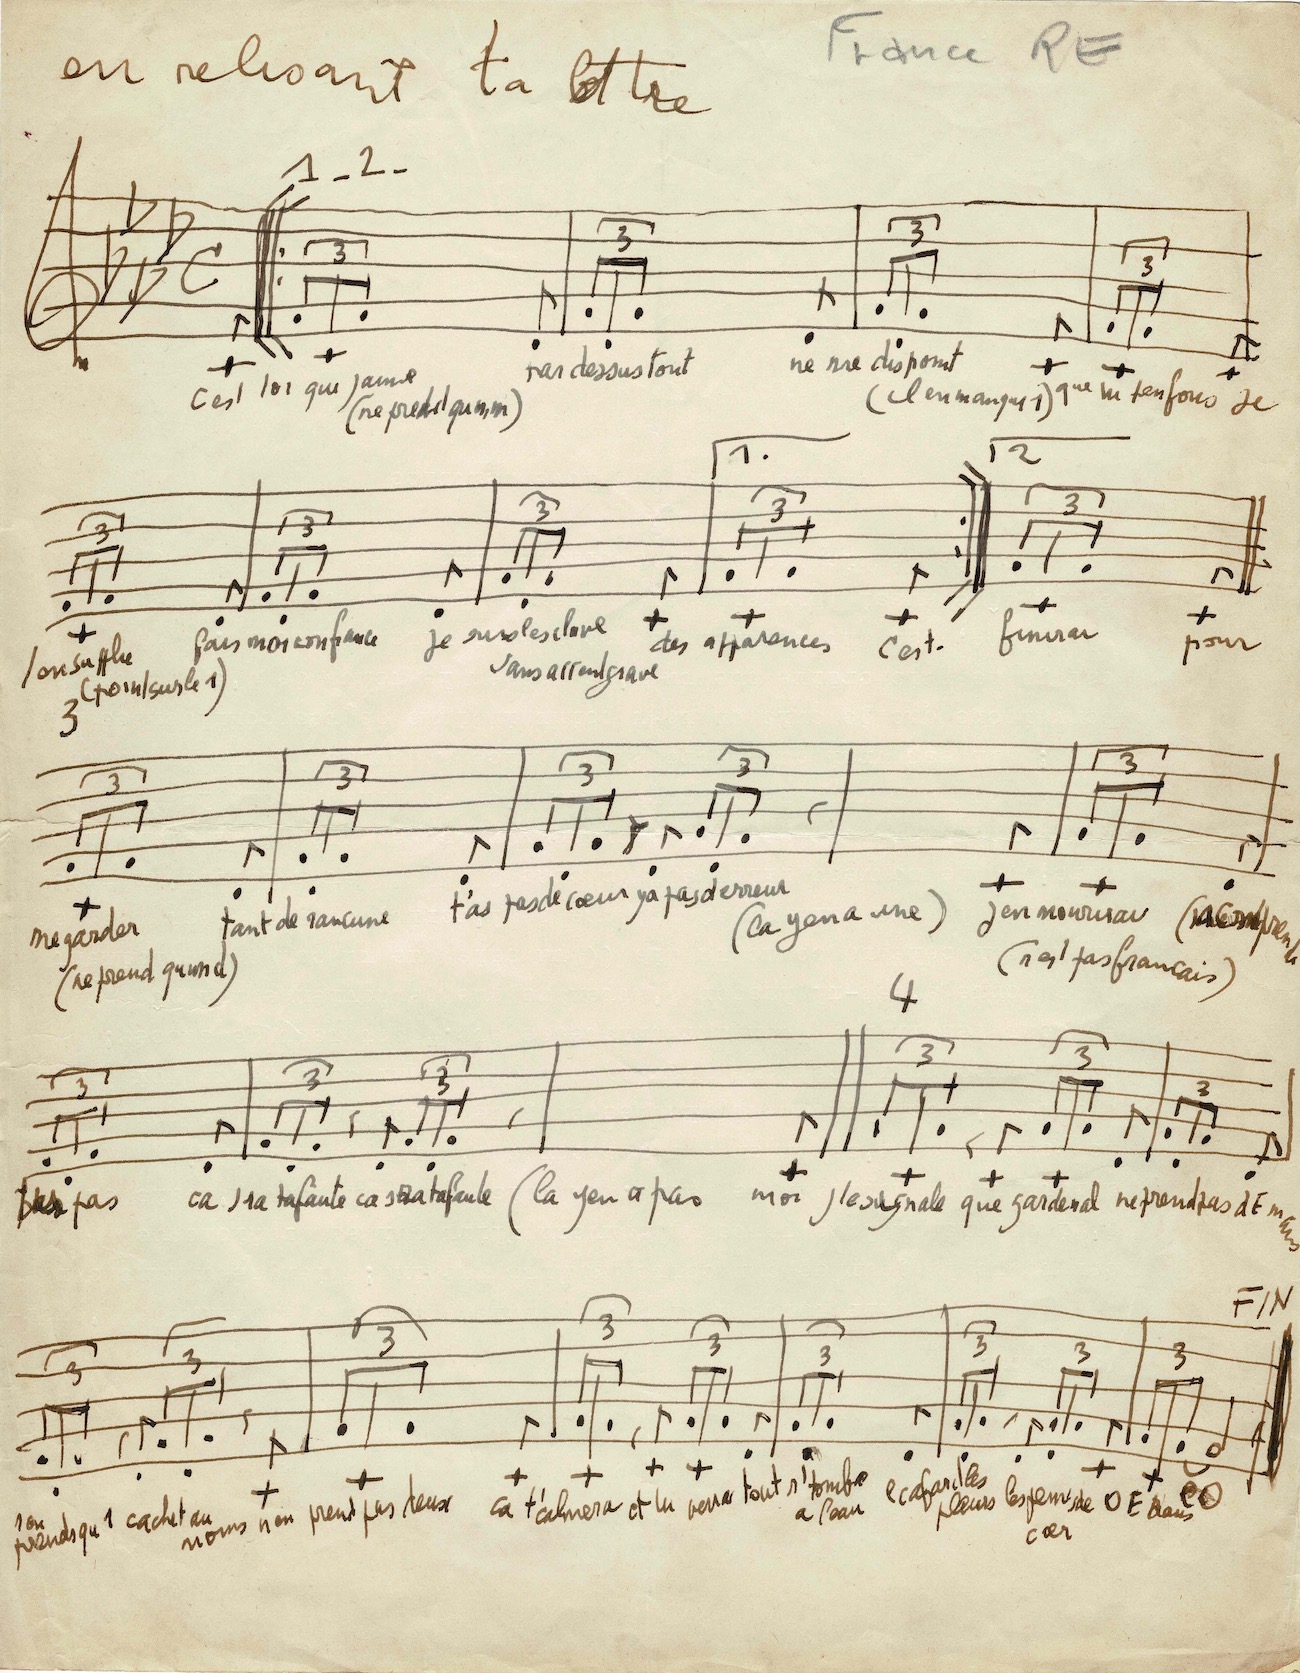 en relisant ta lettre
France RE
1 - 2 -
3 3 3 3
C'est toi que j'aime par dessus tout ne me dis point que tu t'en fous Je
(ne prend qu'un m) (il en manque 1)
1. 2
3 3 3 3 3
t'en supplie fais moi confiance je suis l'esclave des apparences C'est. finirai pour
(point sur le 1) sans accent grave
3
3 3 3 3 3
me garder tant de rancune t'as pas de cœur y a pas d'erreur j'en mourirai
(ne prend qu'un d) (la y en a une) (n'est pas français)
4
3 3 3 3 3 3
pas ca s'ra ta faute ca s'ra ta faute (la y en a pas moi j'te signale que gardenal ne prend pas d'E mais
FIN
3 3 3 3 3 3 3 3 3
n'en prends qu'1 cachet au moins n'en prend pas deux ca t'calmera et tu verras tout r'tombe a l'eau l'cafard les pleurs les peines de cœr O E dans l'O